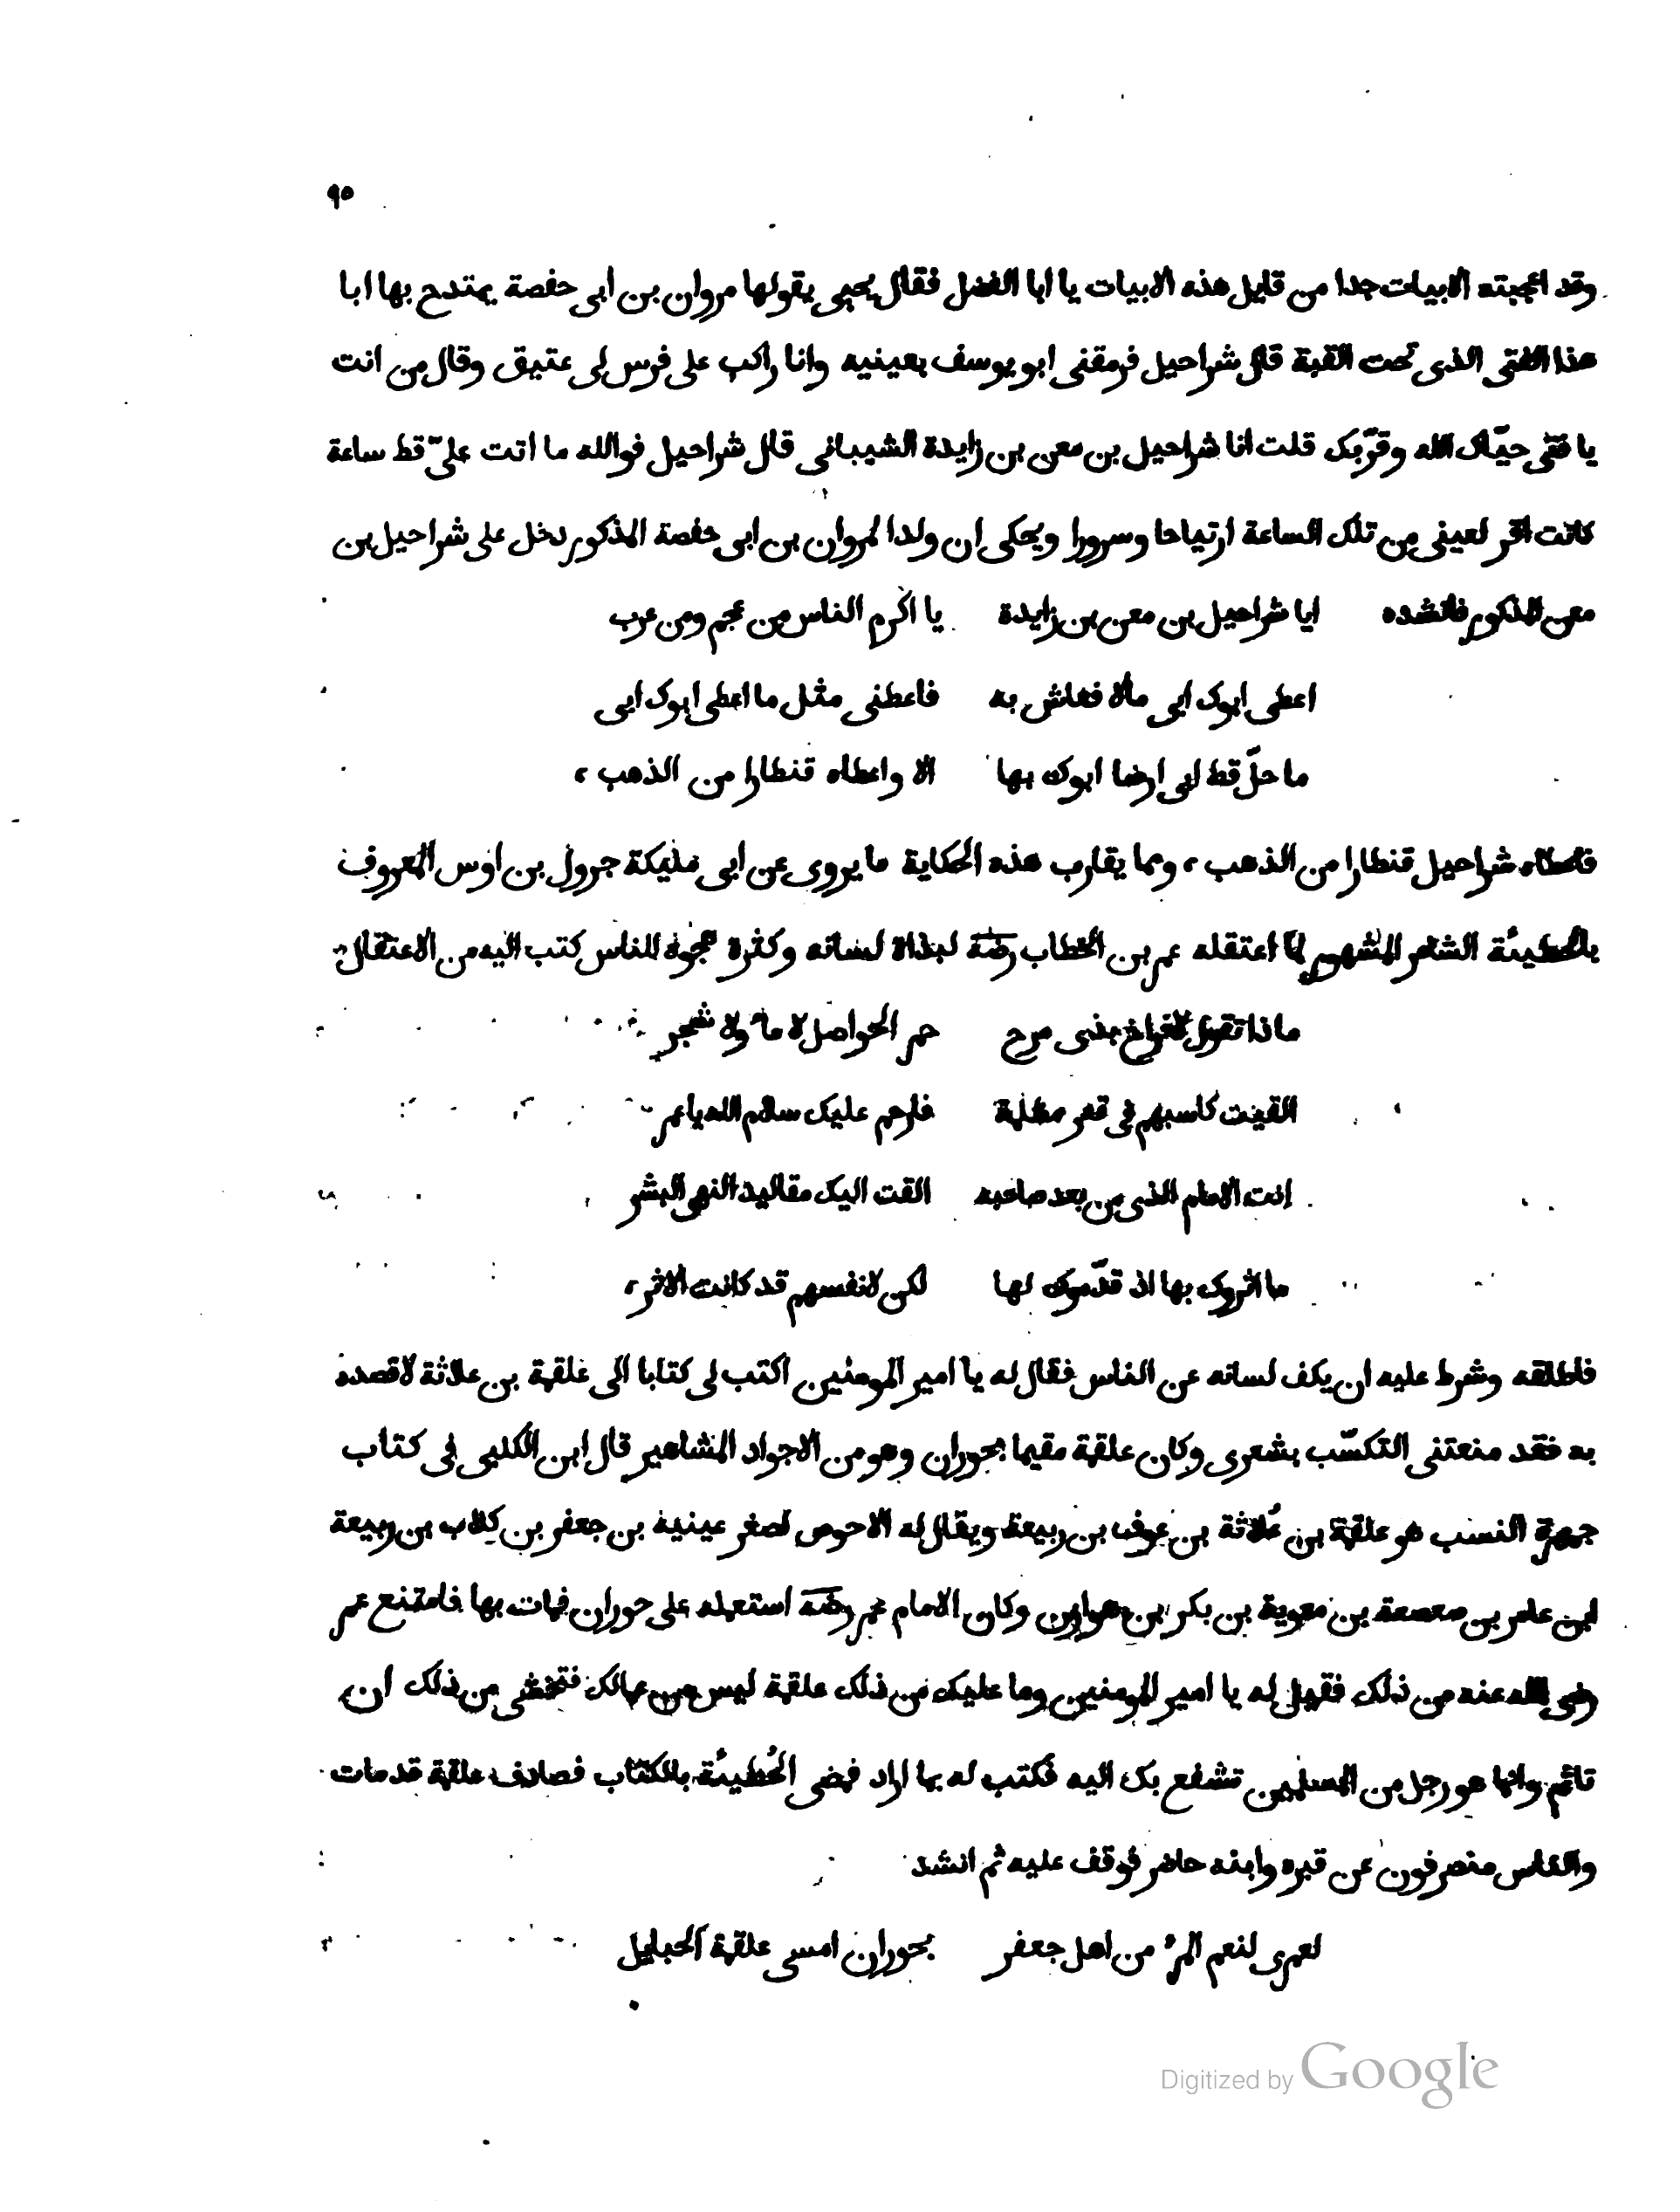 ٩٥
وقد اعجبته الابيات جدا من قايل هذه الابيات يا ابا الفضل فقال يحيى يقولها مروان بن ابى حفصة يمتدح بها ابا
هذا الفتى الذى تحت القبة قال شراحيل فرمقنى ابو يوسف بعينيه وانا راكب على فرس لى عتيق وقال من انت
يا فتى حيّاك الله وقرّبك قلت انا شراحيل بن معن بن زايدة الشيبانى قال شراحيل فوالله ما اتت علىّ قط ساعة
كانت اقر لعينى من تلك الساعة ارتياحا وسرورا ويحكى ان ولدا لمروان بن ابى حفصة المذكور دخل على شراحيل بن
معن المذكور فانشده ايا شراحيل بن معن بن زايدة يا اكرم الناس من عجم ومن عرب
اعطى ابوك ابى مالا فعاش به فاعطنى مثل ما اعطى ابوك ابى
ما حلّ قط ابى ارضا ابوك بها الا واعطاه قنطارا من الذهب ،
فاعطاه شراحيل قنطارا من الذهب ، ومما يقارب هذه الحكاية ما يروى عن ابى مليكة جرول بن اوس المعروف
بالحطيئة الشاعر المشهور لما اعتقله عمر بن الخطاب رضه لبذاة لسانه وكثرة هجوه للناس كتب اليه من الاعتقال
ماذا تقول لافراخ بذى مرح حمر الحواصل لا ماء ولا شجر
القيت كاسبهم فى قعر مظلمة فارحم عليك سلام الله يا عمر
انت الامام الذى من بعد صاحبه القت اليك مقاليد النهى البشر
ما اثروك بها اذ قدّموك لها لكن لانفسهم قد كانت الاثر ،
فاطلقه وشرط عليه ان يكف لسانه عن الناس فقال له يا امير المومنين اكتب لى كتابا الى علقمة بن علاثة لاقصده
به فقد منعتنى التكسّب بشعرى وكان علقمة مقيما بحوران وهو من الاجواد المشاهير قال ابن الكلبى فى كتاب
جمهرة النسب هو علقمة بن عُلاثة بن عوف بن ربيعة ويقال له الاحوص لصغر عينيه بن جعفر بن كلاب بن ربيعة
ابن عامر بن صعصعة بن معوية بن بكر بن هوازن وكان الامام عمر رضه استعمله على حوران فمات بها فامتنع عمر
رضى الله عنه من ذلك فقيل له يا امير المومنين وما عليك من ذلك علقمة ليس من عمالك فتخشى من ذلك ان
تاثم وانما هو رجل من المسلمين تشفع بك اليه فكتب له بما اراد فمضى الحُطيئة بالكتاب فصادف علقمة قد مات
والناس منصرفون عن قبره وابنه حاضر فوقف عليه ثم انشد
لعمرى لنعم المرء من اهل جعفر بحوران امسى علقمة الحبايل
Digitized by Google